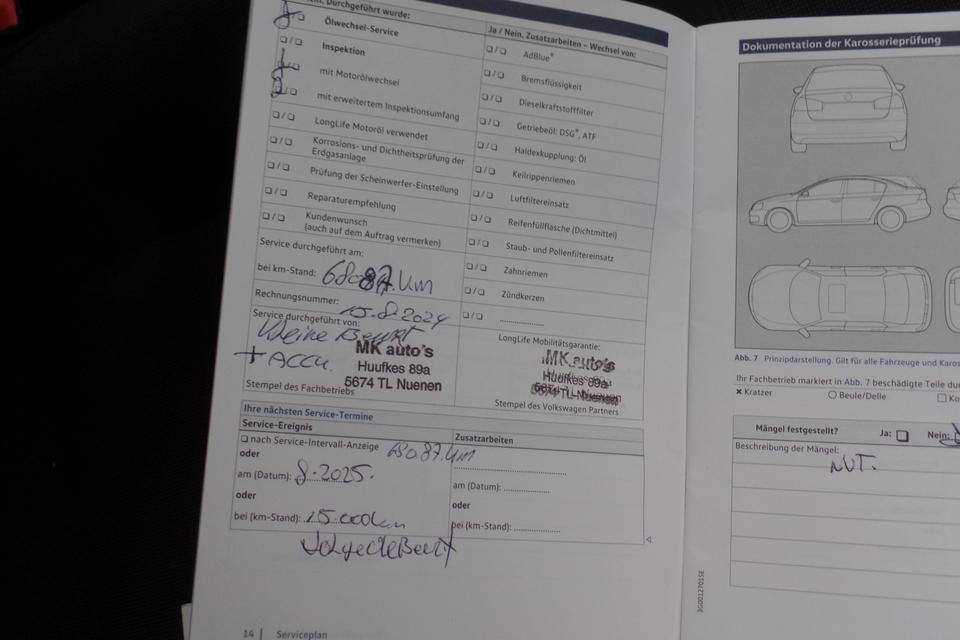 Durchgeführt wurde:
❏/❏ Ölwechsel-Service
❏/❏ Inspektion
❏/❏ mit Motorölwechsel
❏/❏ mit erweitertem Inspektionsumfang
❏/❏ LongLife Motoröl verwendet
❏/❏ Korrosions- und Dichtheitsprüfung der
Erdgasanlage
❏/❏ Prüfung der Scheinwerfer-Einstellung
❏/❏ Reparaturempfehlung
❏/❏ Kundenwunsch
(auch auf dem Auftrag vermerken)
Service durchgeführt am:
bei km-Stand: 68087.km
Rechnungsnummer: 15-8-2024
Service durchgeführt von:
kleine Beurt
+ Accu.
MK auto's
Huufkes 89a
5674 TL Nuenen
Stempel des Fachbetriebs
Ja / Nein. Zusatzarbeiten – Wechsel von:
❏/❏ AdBlue®
❏/❏ Bremsflüssigkeit
❏/❏ Dieselkraftstofffilter
❏/❏ Getriebeöl: DSG®, ATF
❏/❏ Haldexkupplung: Öl
❏/❏ Keilrippenriemen
❏/❏ Luftfiltereinsatz
❏/❏ Reifenfüllflasche (Dichtmittel)
❏/❏ Staub- und Pollenfiltereinsatz
❏/❏ Zahnriemen
❏/❏ Zündkerzen
❏/❏ ....................
LongLife Mobilitätsgarantie:
MK auto's
Huufkes 89a
5674 TL Nuenen
Stempel des Volkswagen Partners
Ihre nächsten Service-Termine
Service-Ereignis
❏ nach Service-Intervall-Anzeige 68087.km
oder
am (Datum): 8-2025.
oder
bei (km-Stand): 15.000km
Volgende Beurt
Zusatzarbeiten
....................
am (Datum): ....................
oder
bei (km-Stand): ....................
14 | Serviceplan
Dokumentation der Karosserieprüfung
Abb. 7 Prinzipdarstellung. Gilt für alle Fahrzeuge und
Ihr Fachbetrieb markiert in Abb. 7 beschädigte Teile
✖ Kratzer ○ Beule/Delle ❏
Mängel festgestellt? Ja: ❏ Nein:
Beschreibung der Mängel:
NVT.
3G0012701SE